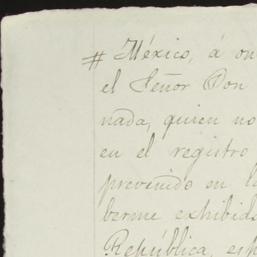 # México, á on
el Señor Don
nada, quien no
en el registro
prevenido en l
berme exhibid
República, es